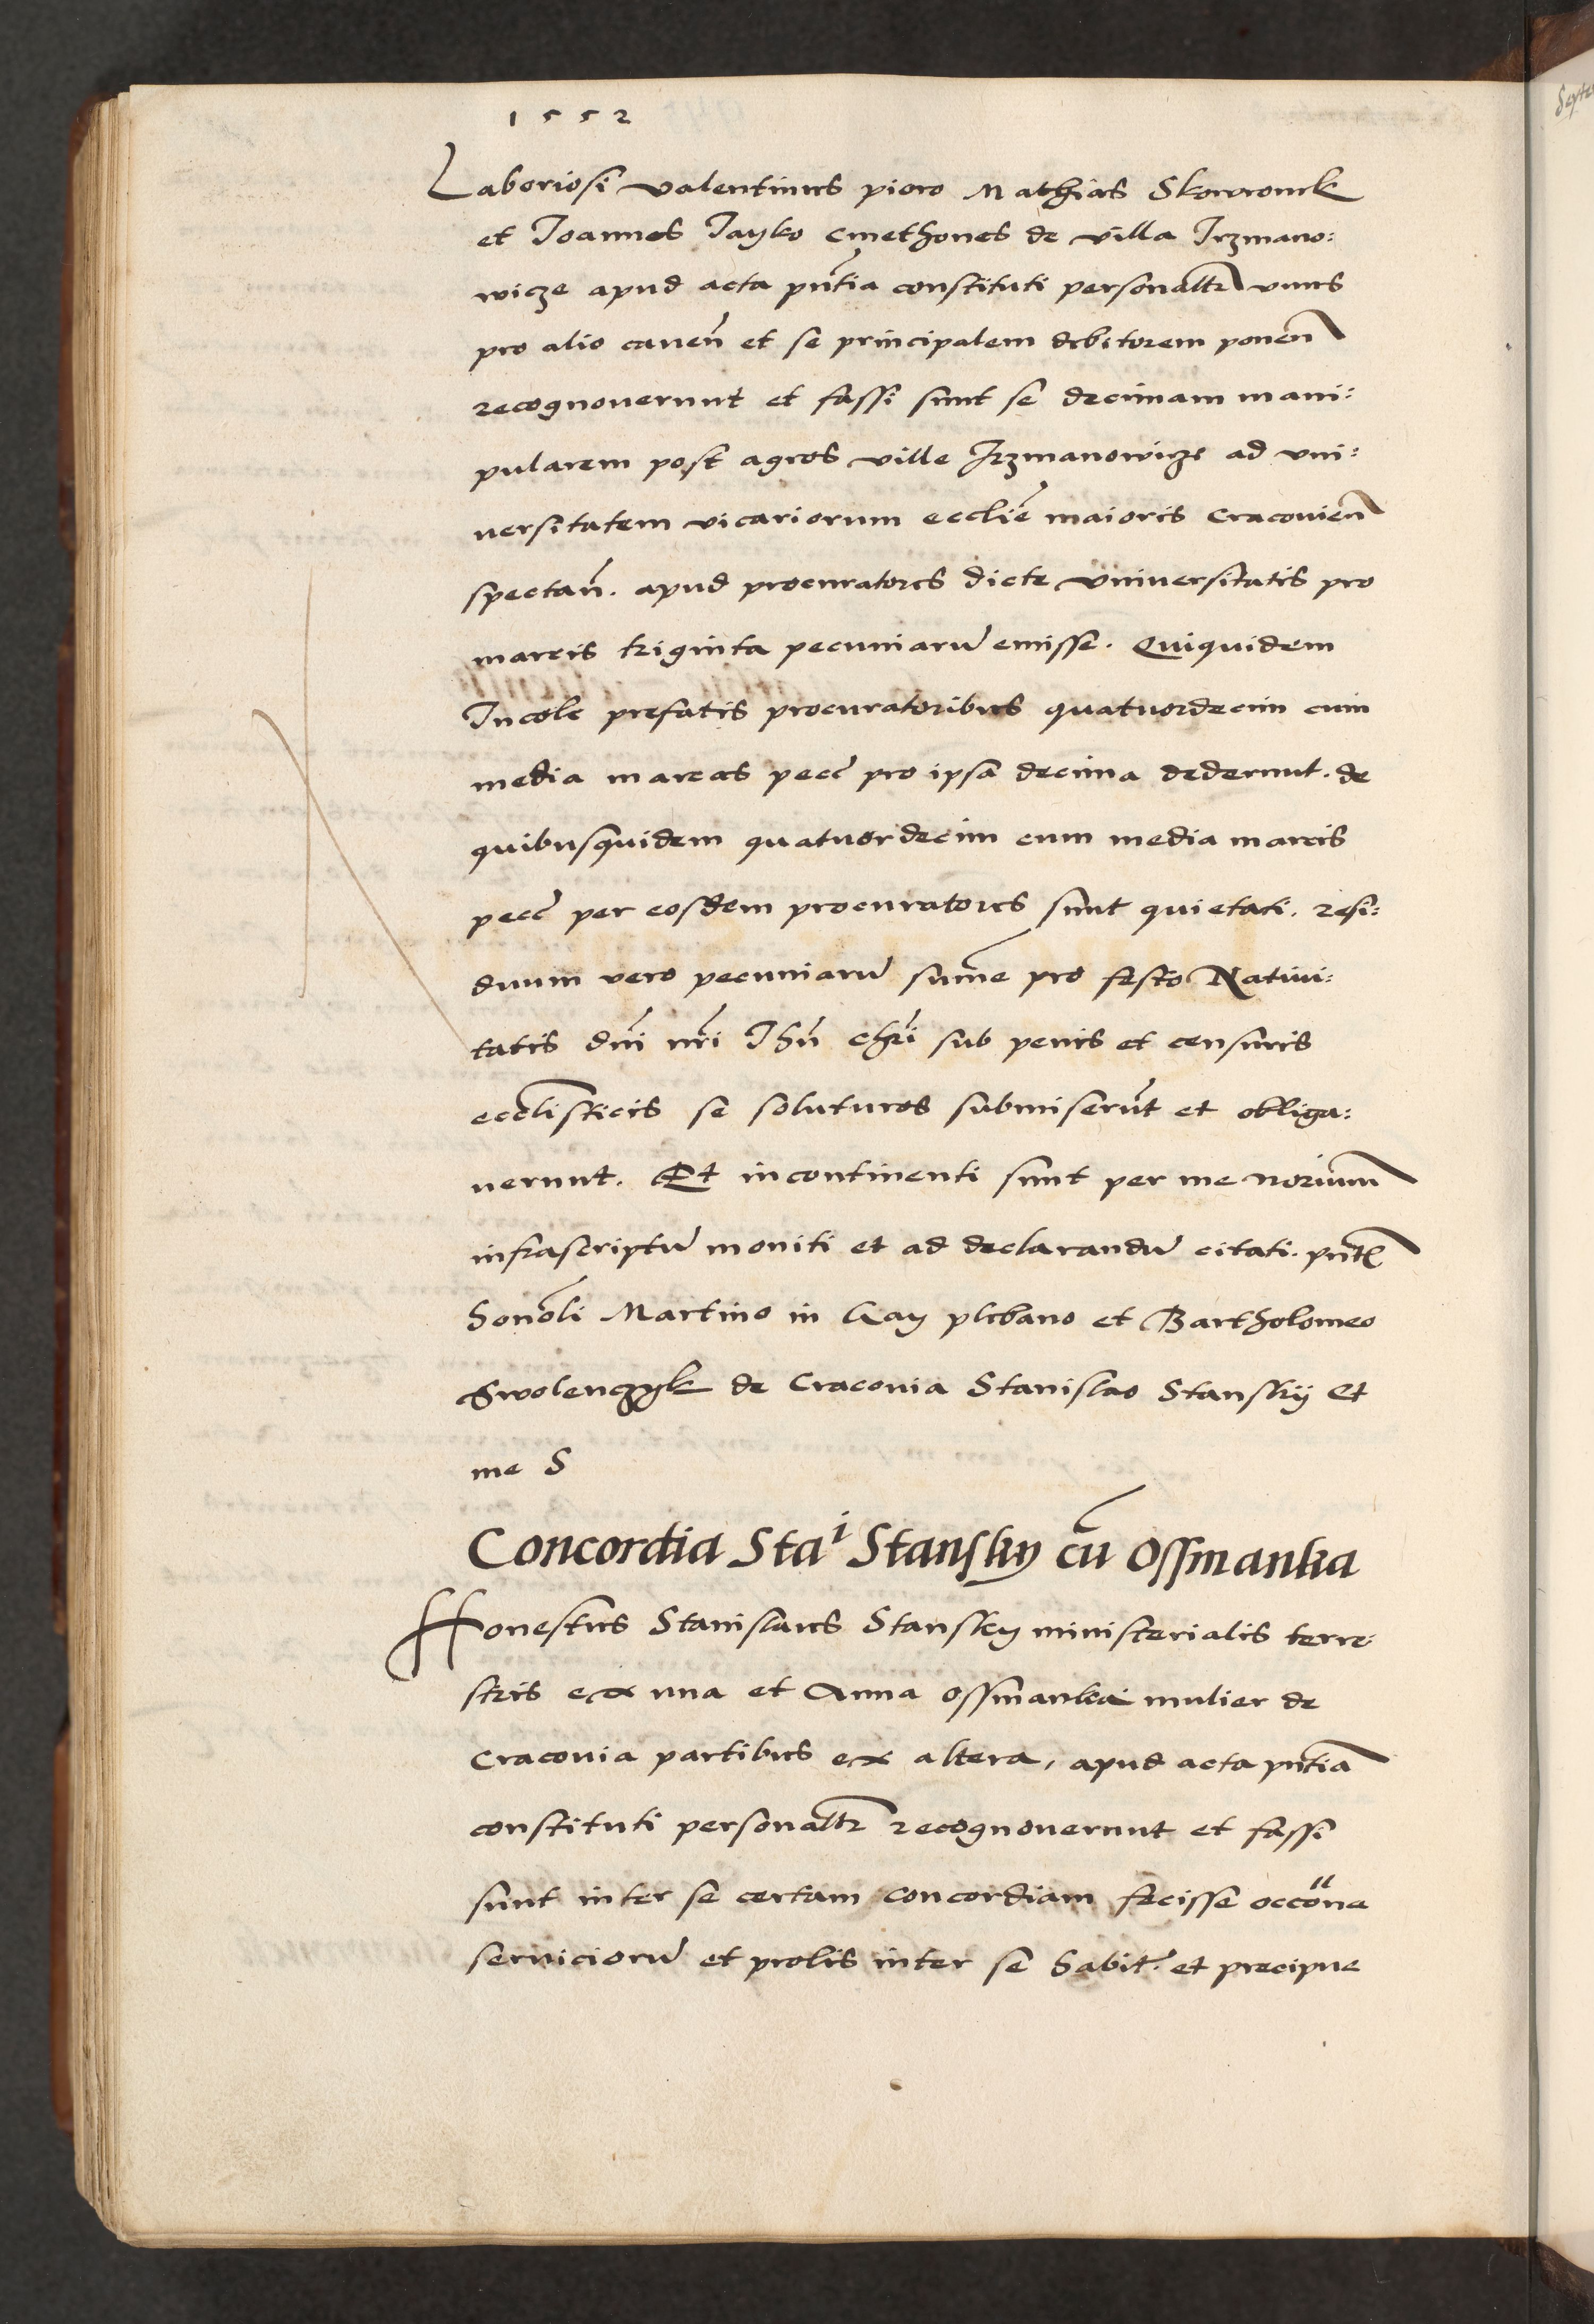 1552
Laboriosi Valentinus pioro Mathias Skowronek
et Joannes Jayko cmethones de villa Jrzmano:
wicze apud acta pn̄tia constituti personalt̄r vnus
pro alio caven̄ et se principalem debitorem ponen̄
recognouerunt et fassi sunt se decimam mani:
pularem post agros ville Jrzmanowicze ad vni:
uersitatem vicariorum eccl̄ie maioris Cracovien̄
spectan̄. apud procuratores dicte vniuersitatis pro
marcis triginta pecuniarū emisse. Quiquidem
Incole prefatis procuratoribus quatuordecim cum
media marcas pecc̄ pro ipsa decima dederunt. de
quibusquidem quatuordecim cum media marcis
pecc̄ per eosdem procuratores sunt quietati. resi:
duum vero pecuniarū sum̄e pro festo Natiui:
tatis dn̄i nr̄i Jhū chrī sub penis et censuris
eccl̄isticis se soluturos submiserūt et obliga:
uerunt. Et incontinenti sunt per me nor̄ium
infrascriptū moniti et ad declarandū citati. pn̄t
honōli Martino in Gay plebano et Bartholomeo
Swolenczyk de Cracovia Stanislao Stanskij et
me S
Concordia Staⁱ Stansky cū Ossmanka
Honestus Stanislaus Stansky ministerialis terre:
stris ex una et Anna Ossmanka mulier de
Cracovia partibus ex altera, apud acta pn̄tia
constituti personalt̄r recognouerunt et fassi
sunt inter se certam concordiam fecisse occōne
seruiciorū et prolis inter se habit̄. et precipue